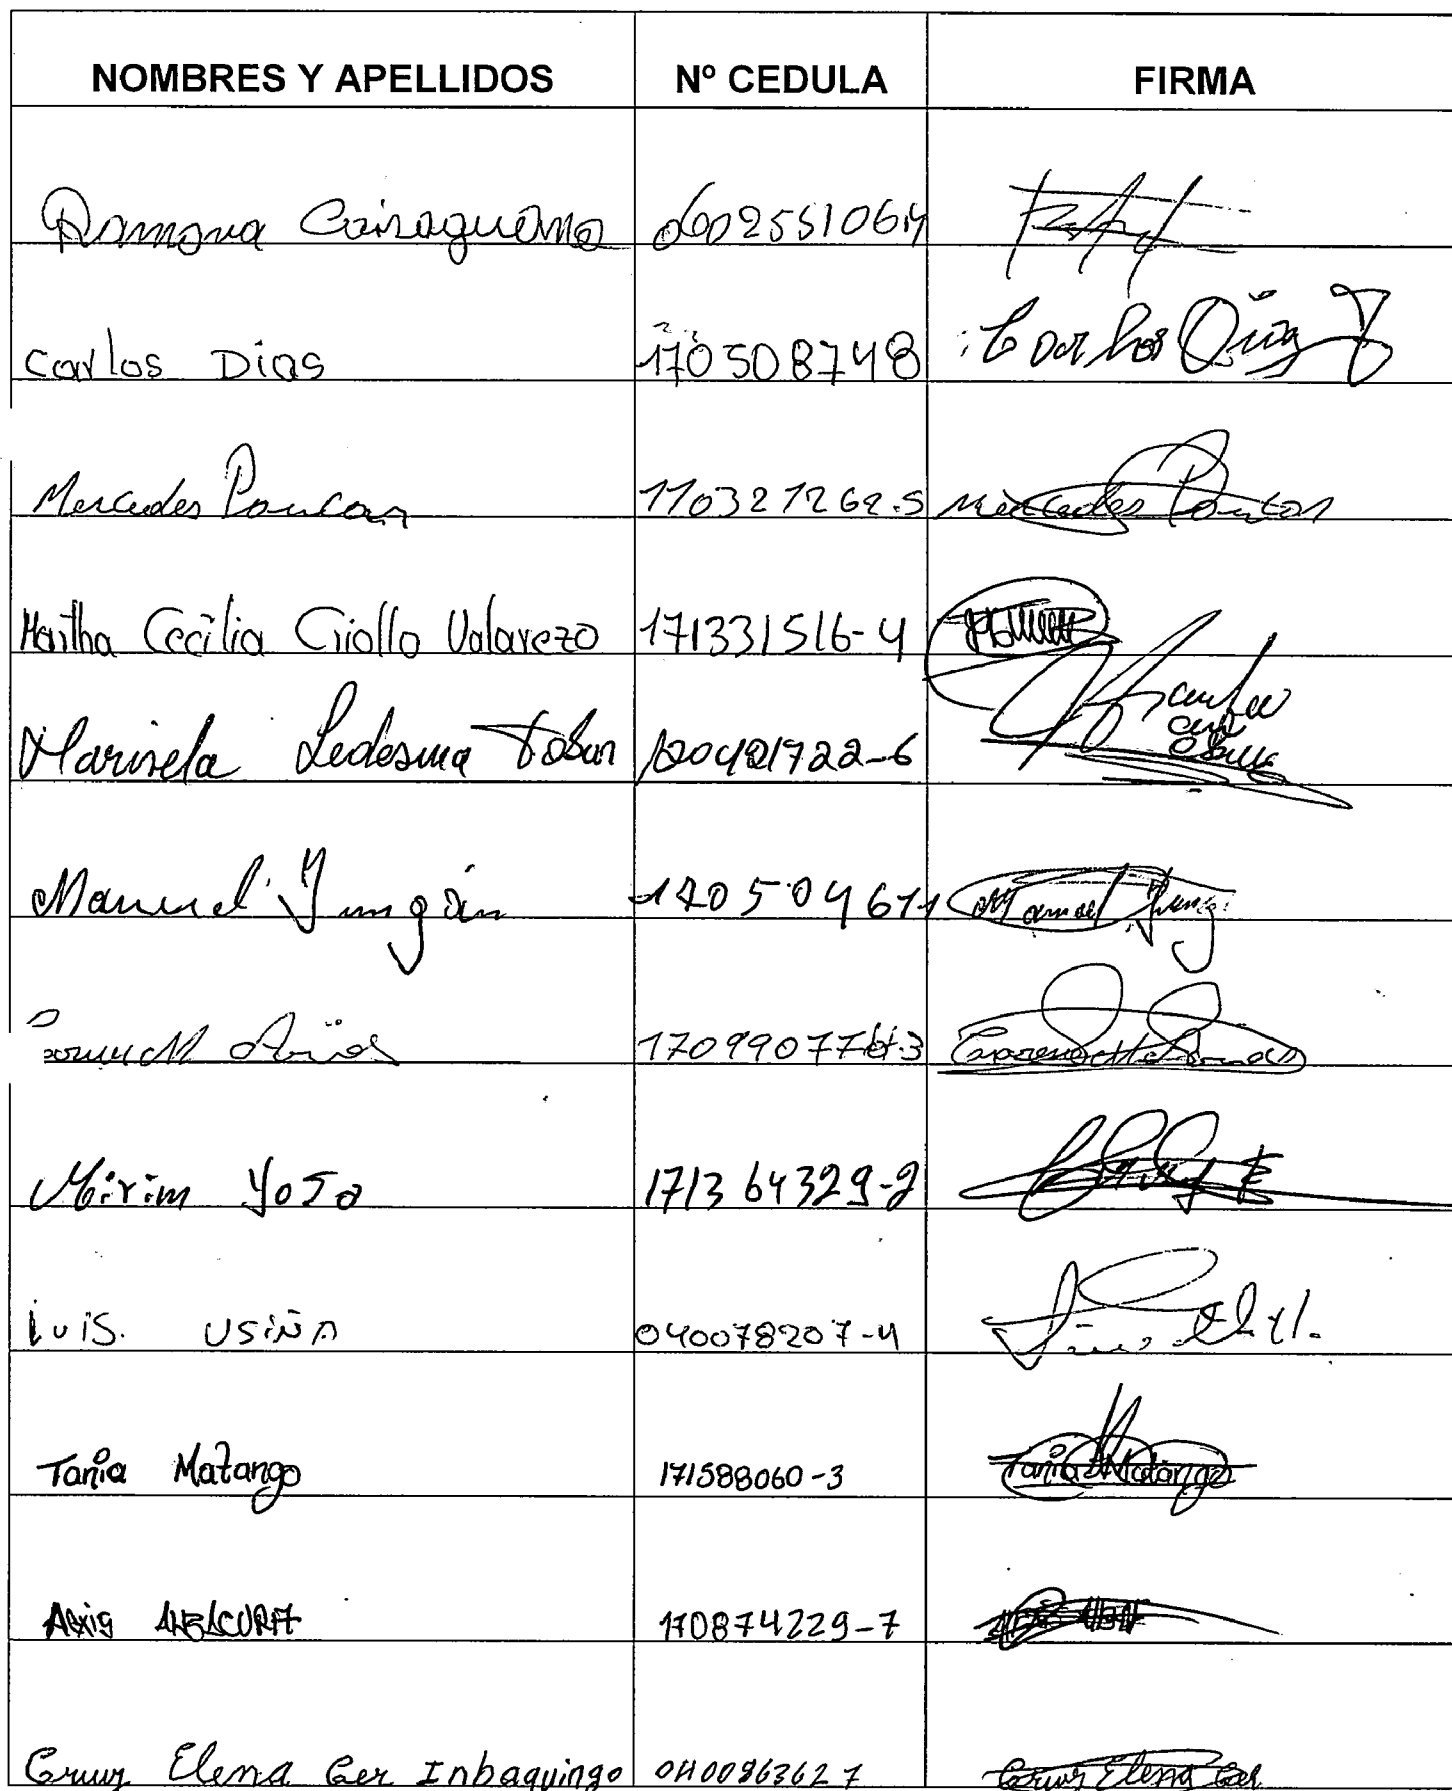 NOMBRES Y APELLIDOS Nº CEDULA FIRMA
Ramona Cairaguano 0602551064
Carlos Dias 170508748 Carlos Dias
Mercedes Paucar 110321262-5 Mercedes Paucar
Martha Cecilia Criollo Valarezo 171331516-4
Marisela Ledesma Tobar 120421722-6
Manuel Yungán 170504671 Manuel Yung
Arias 1709907743
Mirim Yosa 171364329-2
Luis. Usiña 040078207-4
Tania Matango 171588060-3 Tania Matango
170874229-7
Elena Ger Inbaquingo 0400863627 Elena Ger